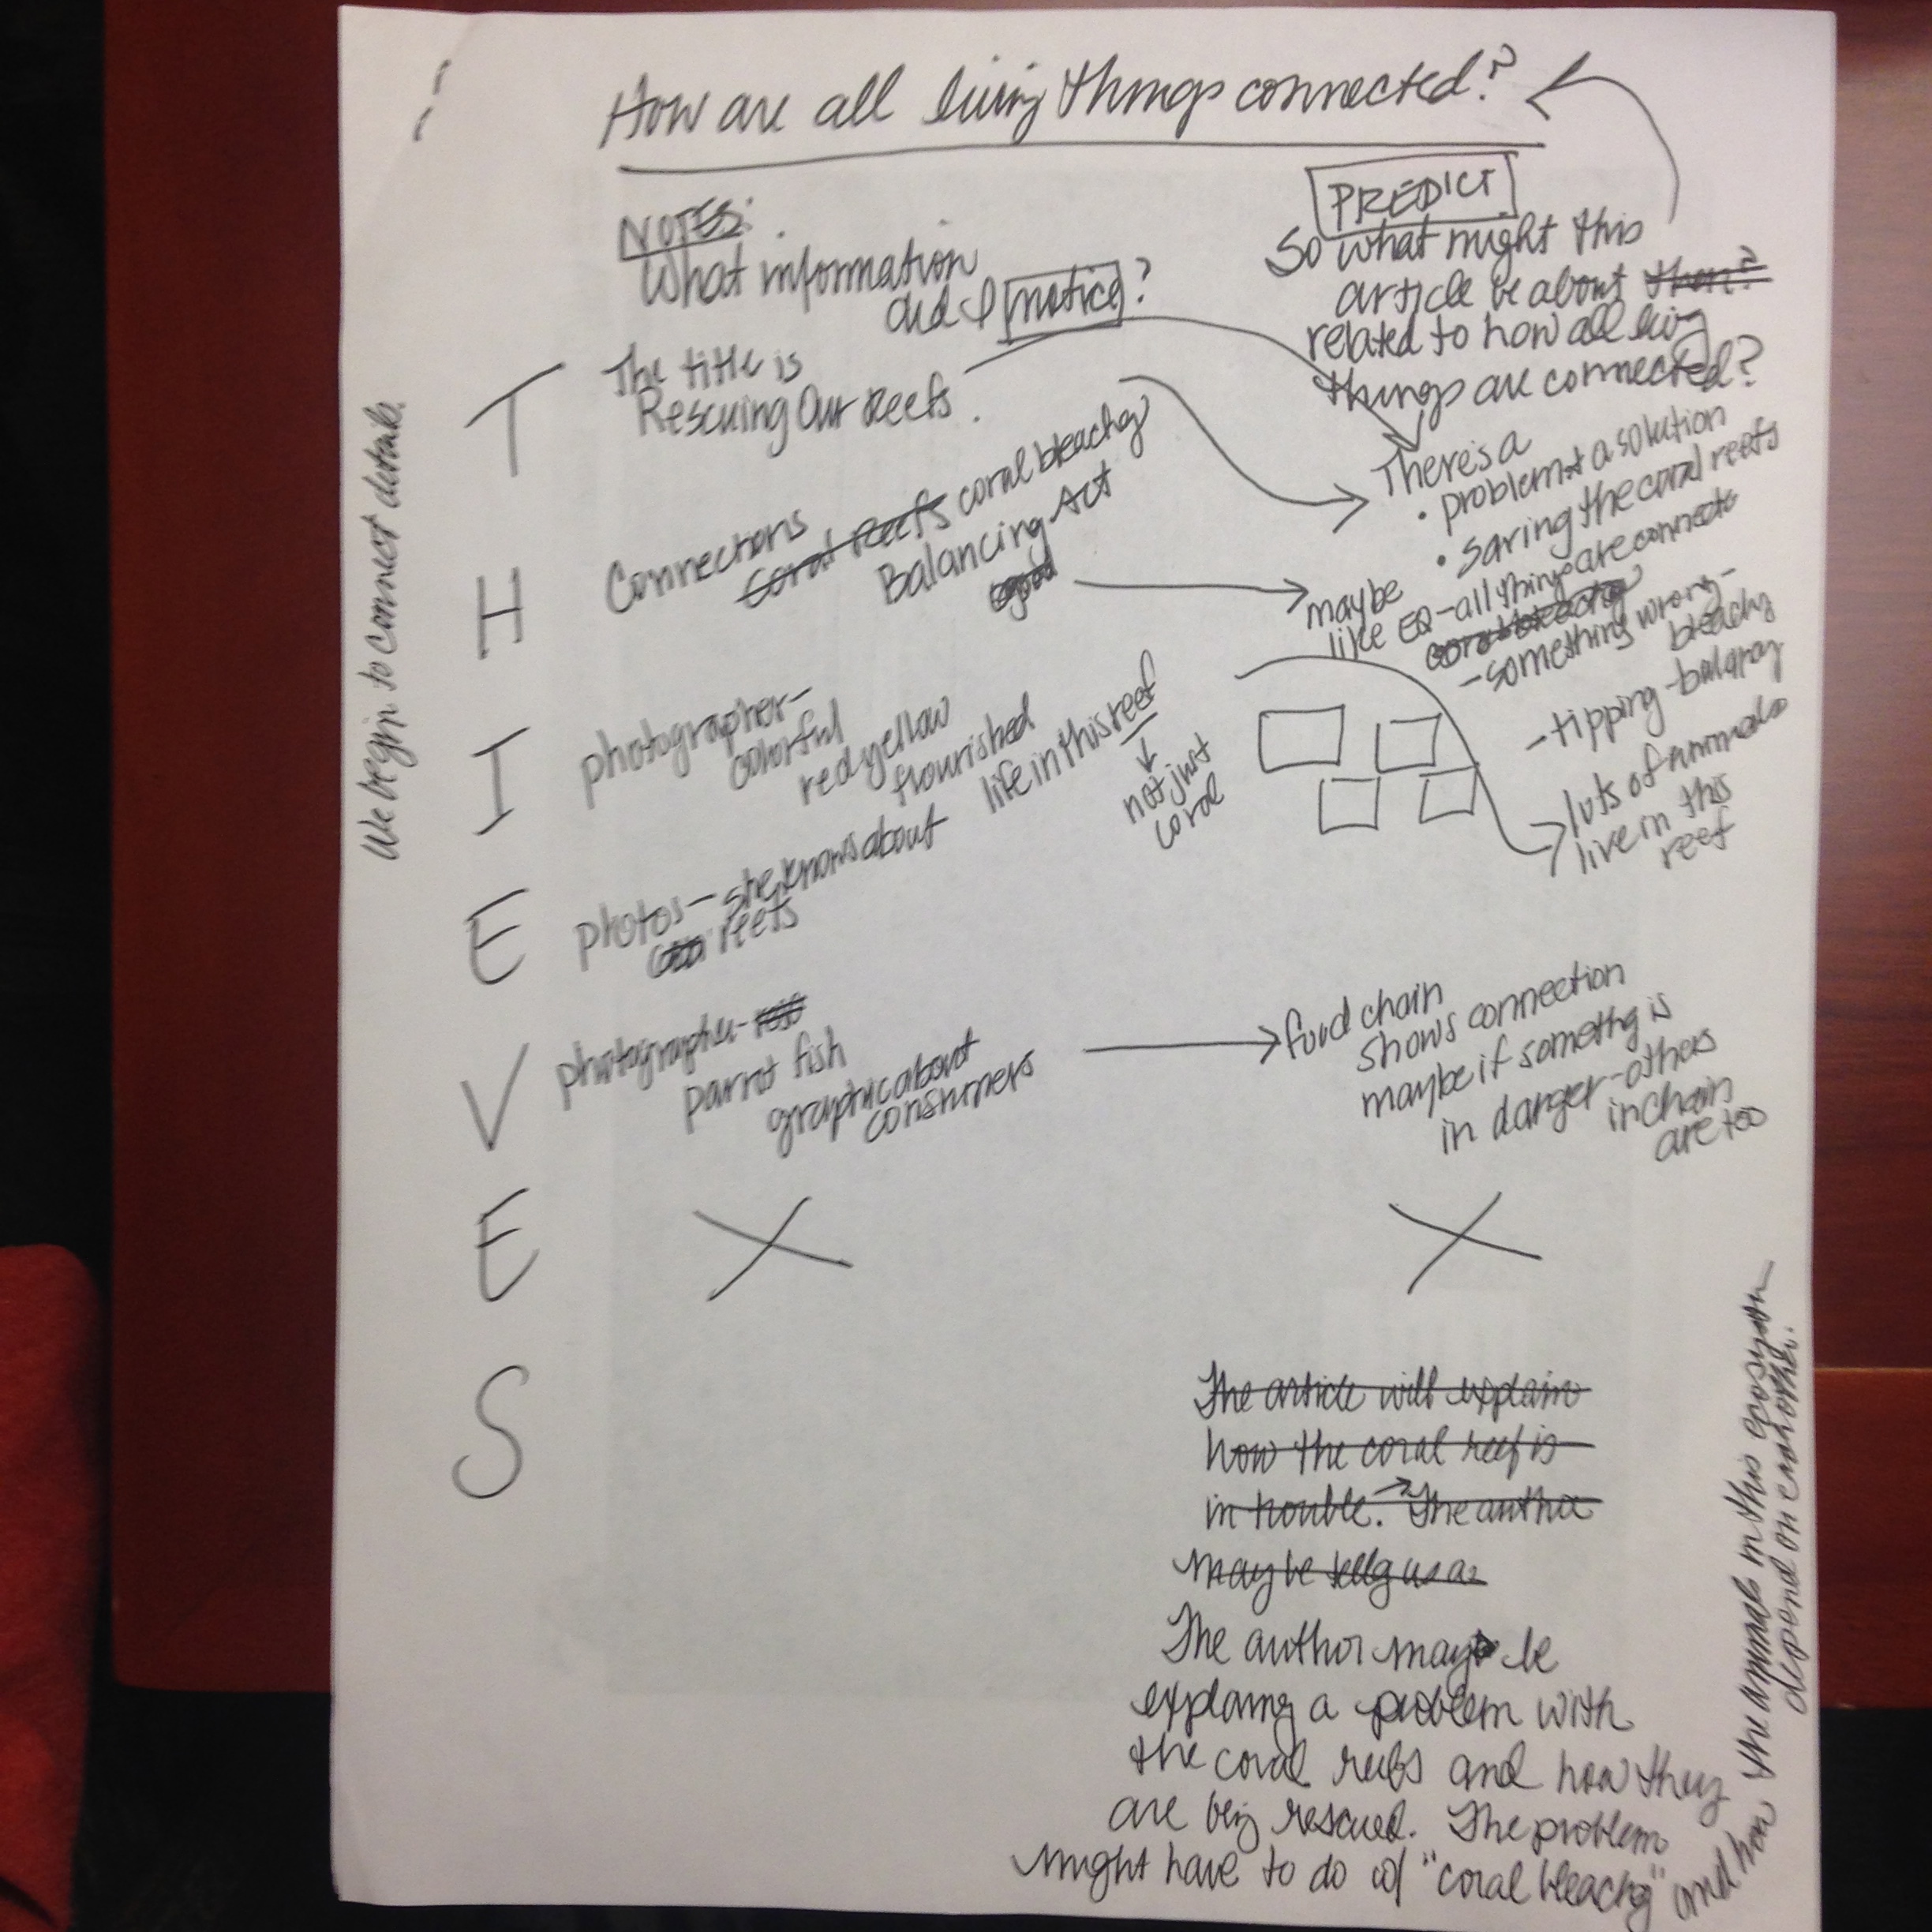 How are all living things connected?
NOTES:
What information
did I notice?
PREDICT
So what might this
article be about then?
related to how all living
things are connected?
We begin to connect details.
T
The title is
Rescuing Our Reefs.
There's a
• problem + a solution
• saving the coral reefs
H
Connections
Coral Reefs coral bleachg
Balancing Act
good
maybe
like EQ - all things are connected
coral bleachg
- something wrong -
bleachg
- tipping - balancg
I
photographer -
colorful
red yellow
flourished
life in this reef
↓
not just
coral
lots of animals
live in this
reef
E
photos - she knows about
reefs
V
photographer -
parrot fish
graphic about
consumers
food chain
shows connection
maybe if somethg is
in danger - others
in chain
are too
E
X
X
S
The article will explain
how the coral reef is
in trouble. The author
may be tellg us a
The author may be
explaing a problem with
the coral reefs and how they
are beig rescued. The problem
might have to do w/ "coral bleachg"
and how the animals in this ecosystem
depend on each other.